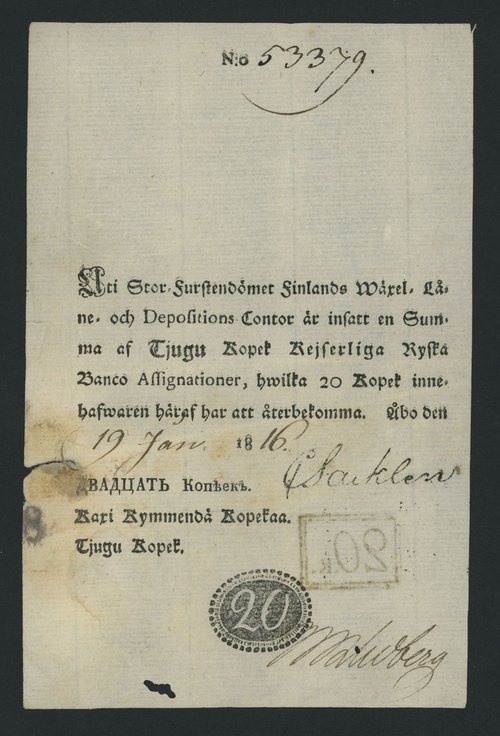 N:o 53379.
Uti Stor-Furstendömet Finlands Wäxel- Lå-
ne- och Depositions-Contor är insatt en Sum-
ma af Tjugu Kopek Kejserliga Ryska
Banco Assignationer, hwilka 20 Kopek inne-
hafwaren häraf har att återbekomma. Åbo den
19 Jan. 1816.
ДВАДЦАТЬ Копѣекъ.
Kaxi Kymmendä Kopekaa.
Tjugu Kopek.
20 K.
20